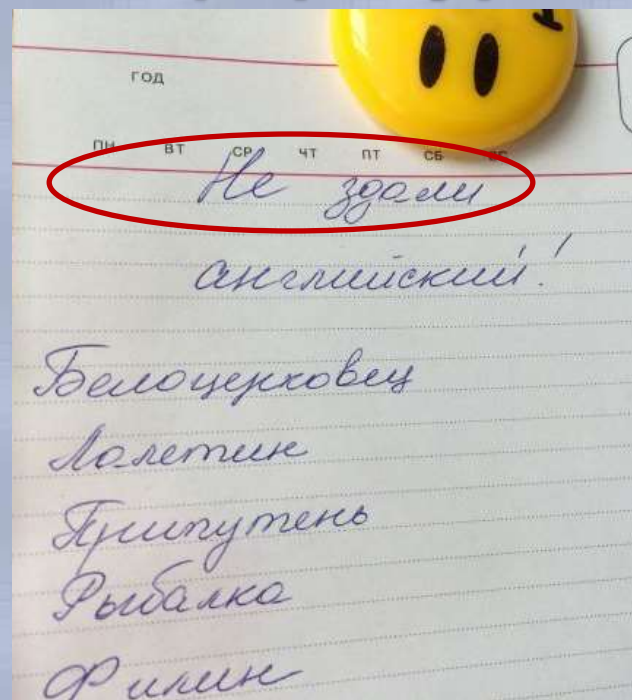 ГОД
ПН ВТ СР ЧТ ПТ СБ ВС
Не здали
английский!
Белоцерковец
Лолетин
Припутень
Рыбалка
Филин